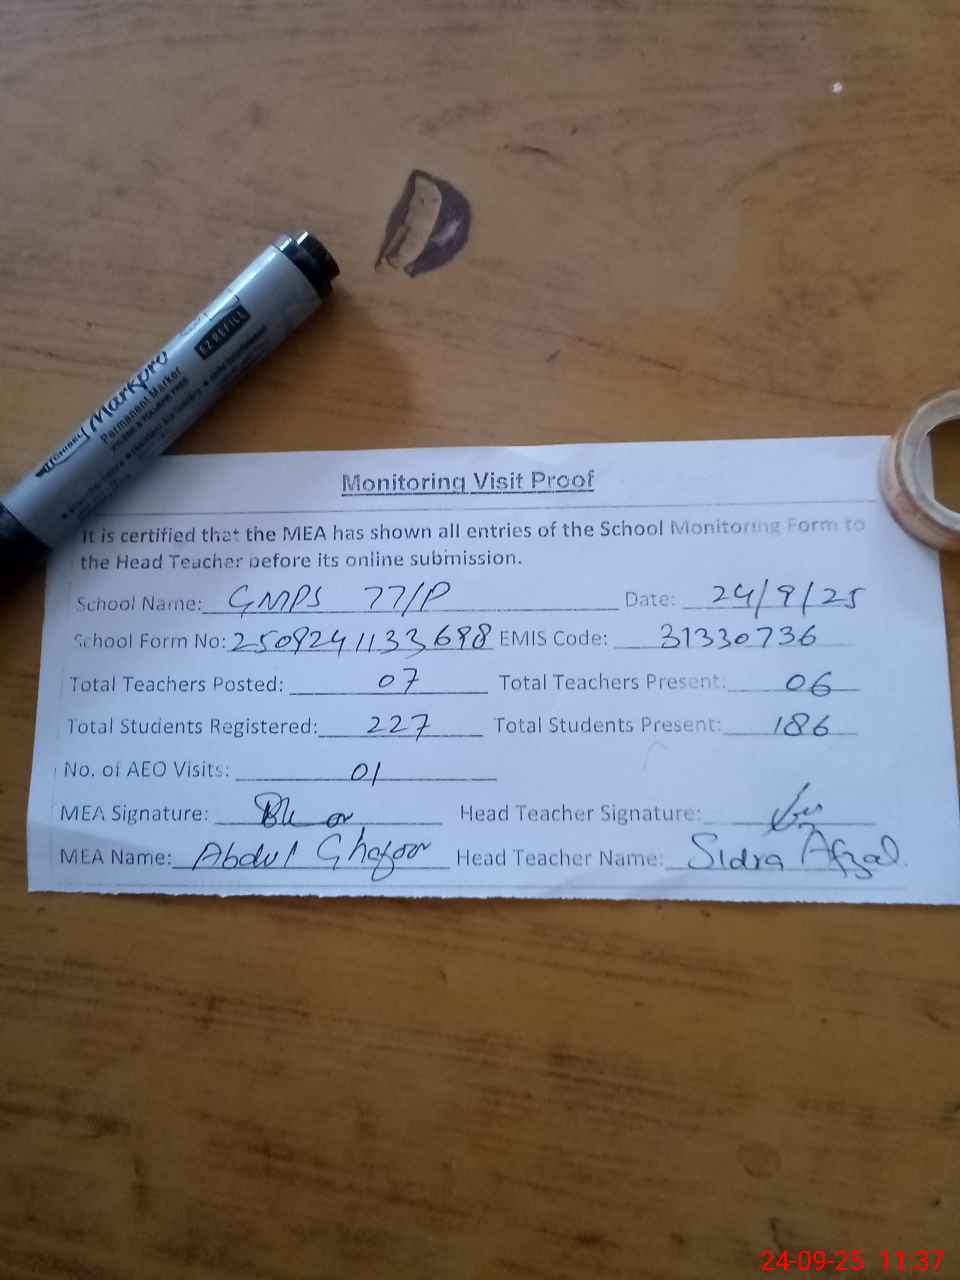 EZ REFILL
Markpro
Permanent Marker
Monitoring Visit Proof
It is certified that the MEA has shown all entries of the School Monitoring Form to
the Head Teacher before its online submission.
School Name: GMPS 77/P Date: 24/9/25
School Form No: 2509241133698 EMIS Code: 31330736
Total Teachers Posted: 07 Total Teachers Present: 06
Total Students Registered: 227 Total Students Present: 186
No. of AEO Visits: 01
MEA Signature: Head Teacher Signature:
MEA Name: Abdul Ghafoor Head Teacher Name: Sidra Afzal
24-09-25 11:37